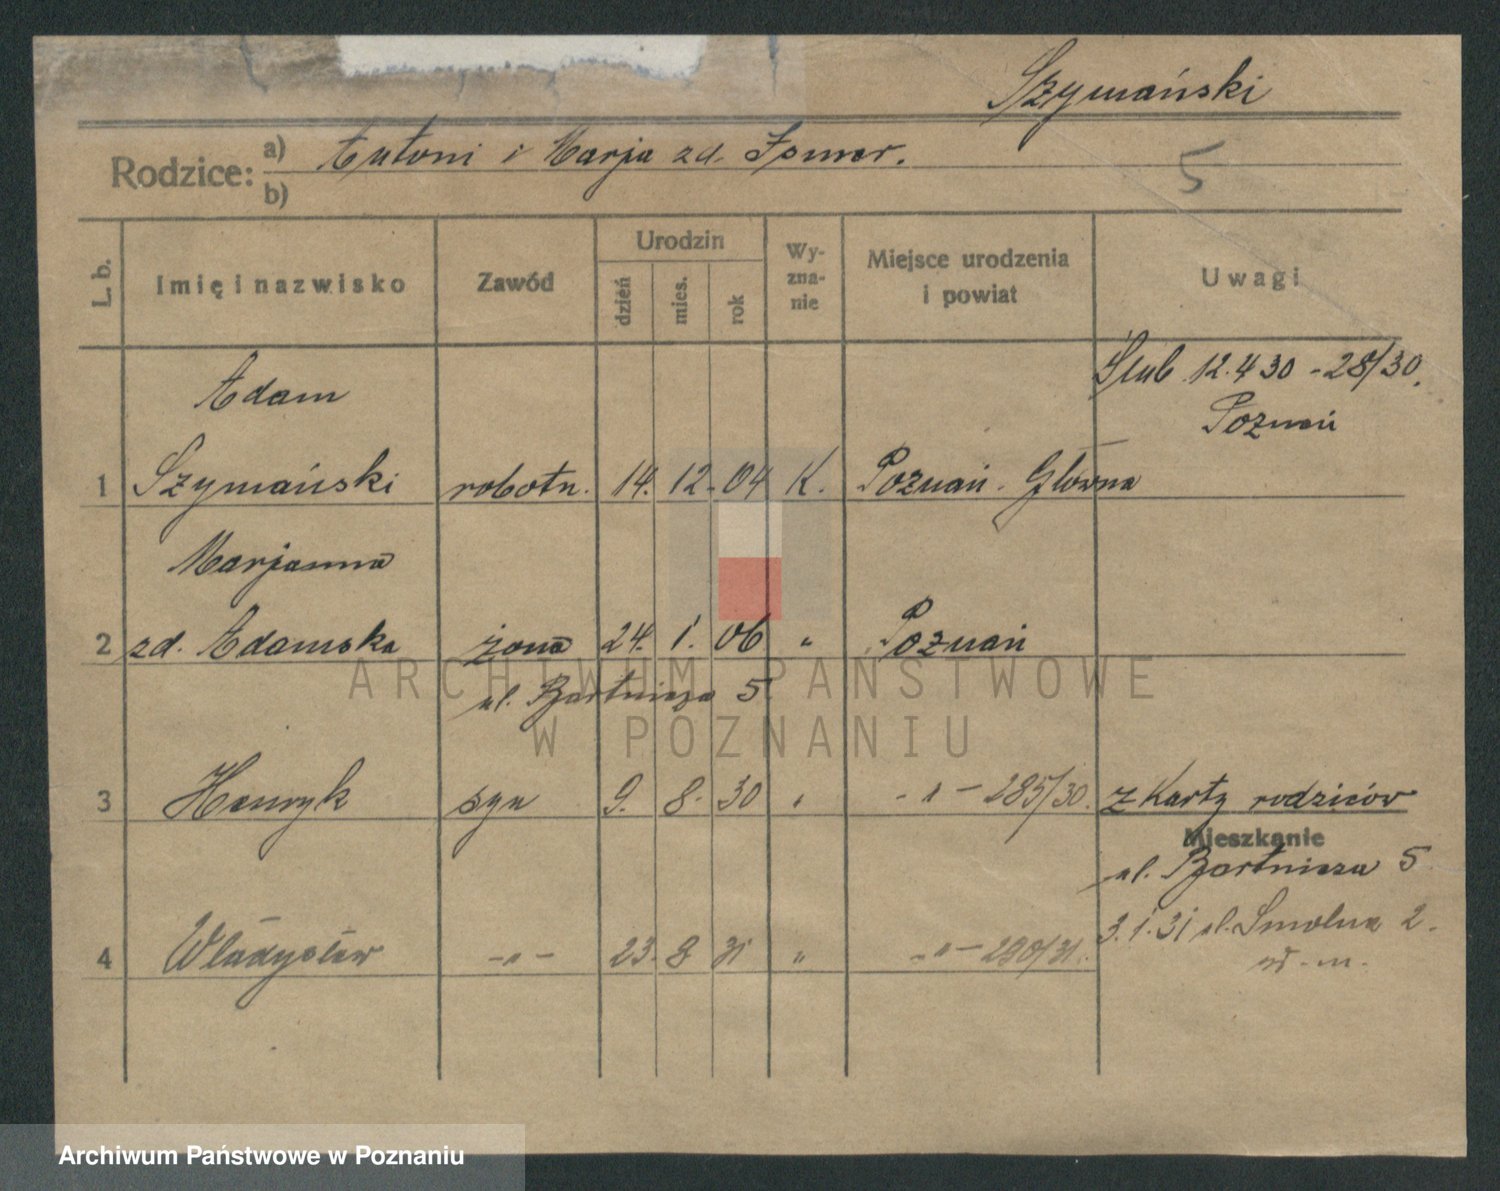 Szymański
Rodzice: a) Antoni i Marja zd.
b)
5
L. b. Imię i nazwisko Zawód Urodzin dzień mies. rok Wyznanie Miejsce urodzenia i powiat Uwagi
Ślub 12.4 30 - 28/30.
Adam
Poznań
1 Szymański robotn. 14. 12. 04 K. Poznań - Główna
Marjanna
2 zd. Adamska żona 24. 1. 06 " Poznań
ul. Bartnicza 5
3 Henryk syn 9. 8. 30 " - " - 285/30. z Karty rodziców
Mieszkanie
ul. Bartnicza 5
3.1.31 ul. Smolna 2.
4 Władysław - " - 23. 8 31 " - " - 290/31.
ARCHIWUM PAŃSTWOWE
W POZNANIU
Archiwum Państwowe w Poznaniu